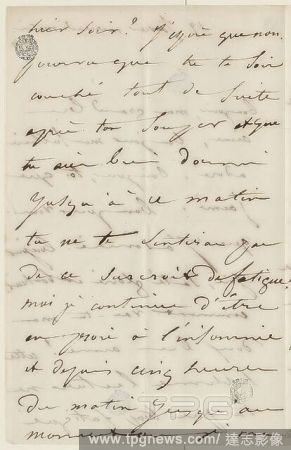 hier soir ? J'espère que non.
pourvu que tu te sois
couché tout de suite
après ton souper et que
tu aies bien dormi
jusqu'à ce matin
tu ne te sentiras pas
de ce surcroît de fatigue.
moi je continue d'être
en proie à l'insomnie
et depuis cinq heures
du matin jusqu'au
moment
TPG
www.tpgnews.com / 達志影像